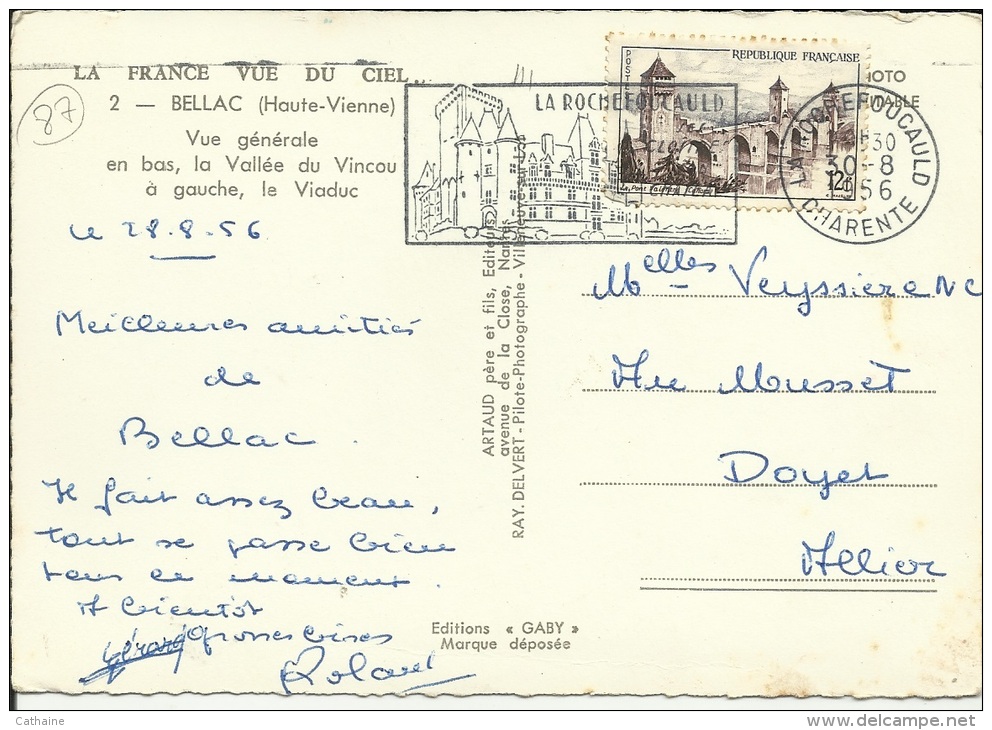 LA FRANCE VUE DU CIEL...
2 — BELLAC (Haute-Vienne)
Vue générale
en bas, la Vallée du Vincou
à gauche, le Viaduc
87
le 28.8.56
Meilleures amitiés
de
Bellac.
Il fait assez beau,
tout se passe bien
en ce moment.
A bientôt
Grosses bises
Gérard
Roland
ARTAUD père et fils, Editeurs
avenue de la Close, Nantes
RAY. DELVERT - Pilote-Photographe - Villeneuve-sur-Lot
Editions « GABY »
Marque déposée
LA ROCHEFOUCAULD
POSTES
REPUBLIQUE FRANÇAISE
12f
LA ROCHEFOUCAULD
30
30-8
56
CHARENTE
PHOTO
VÉRITABLE
Melles Veyssière
Au Musset
Doyet
Allier
Cathaine
www.delcampe.net